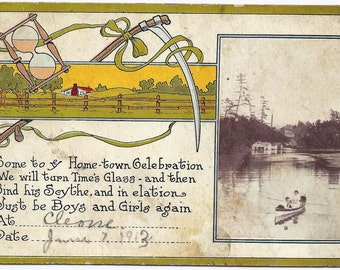 Come to ye Home-town Celebration
We will turn Time's Glass - and then
Bind his Scythe, and in elation
Just be Boys and Girls again
At Cleone
Date June 7, 1913